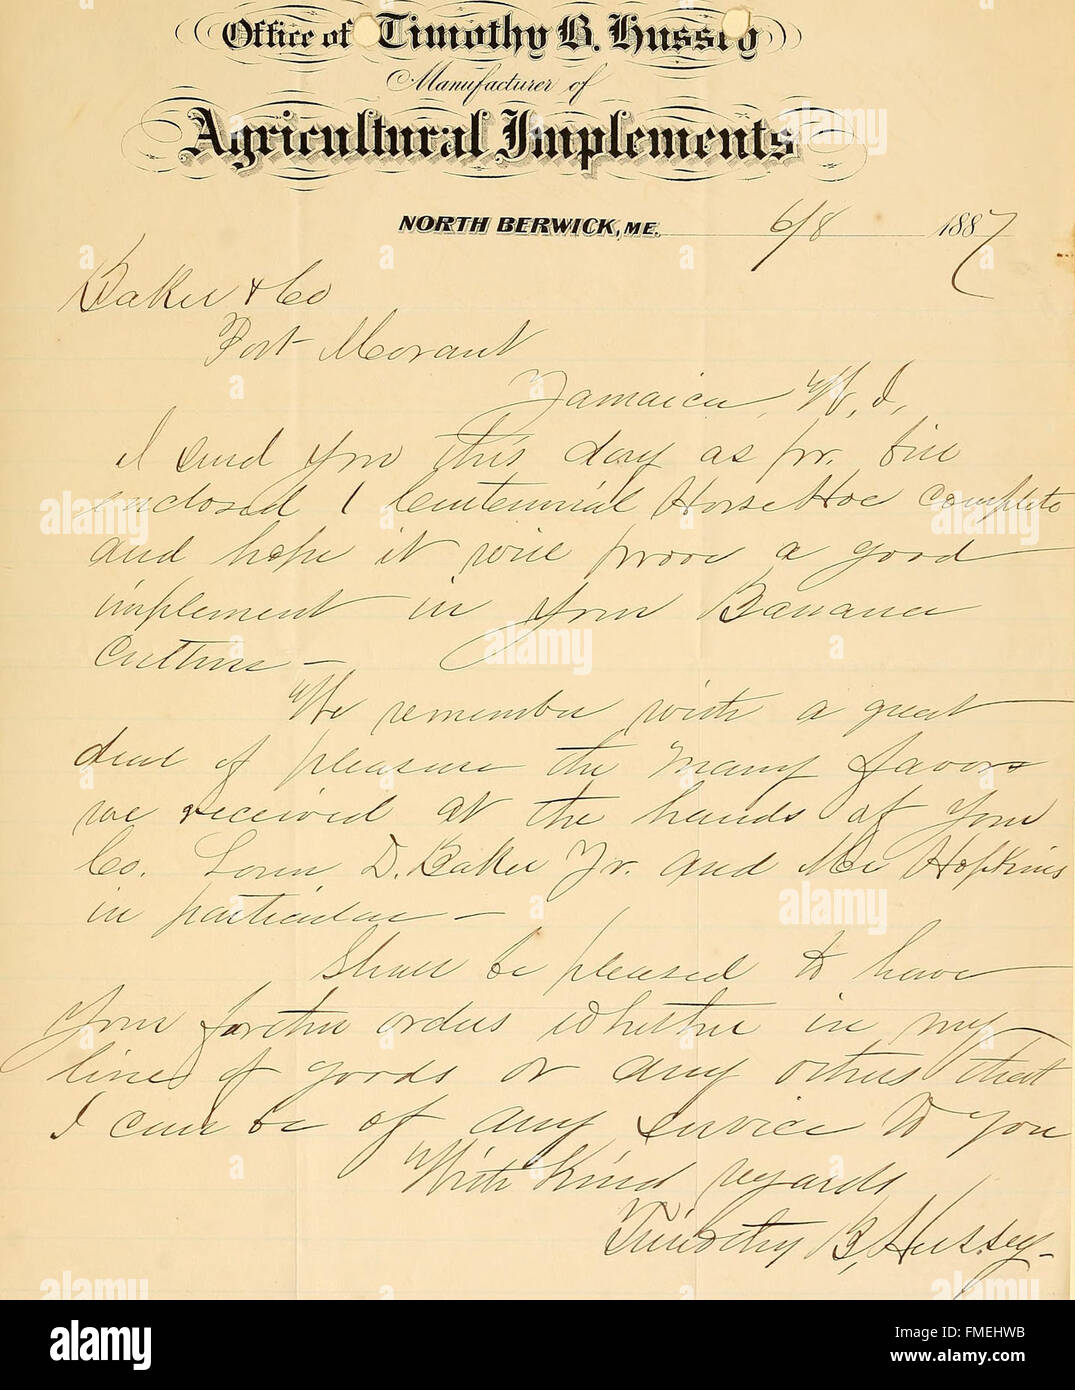 Office of Timothy B. Hussey
Manufacturer of
Agricultural Implements
NORTH BERWICK, ME. 6/8 1887
Baker & Co
Port Morant
Jamaica, W. I,
I send you this day as pr. bill
enclosed 1 Centennial Horse Hoe complete
and hope it will prove a good
implement in your Banana
Culture –
We remember with a great
deal of pleasure the many favors
we received at the hands of your
Co. Loren D. Baker Jr. and Mr Hopkins
in particular –
Shall be pleased to have
your further orders whether in my
line of goods or any others that
I can be of any service to you
With Kind regards
Timothy B, Hussey –
alamy
Image ID: FMEHWB
www.alamy.com